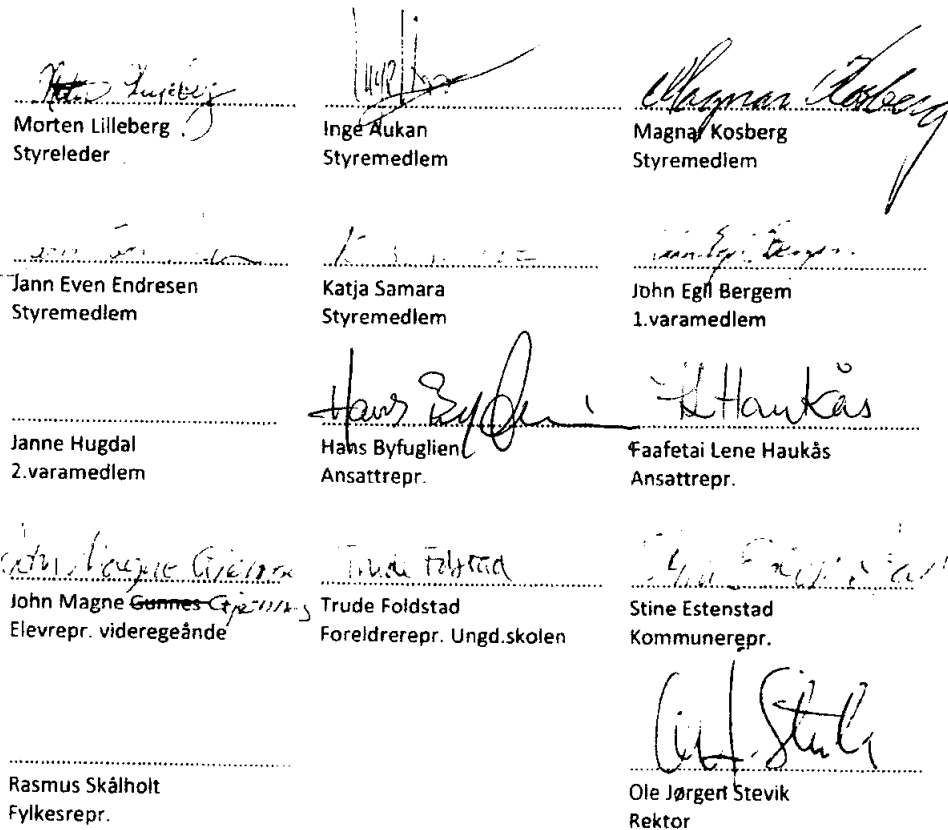 Morten Lilleberg
Styreleder
Inge Aukan
Styremedlem
Magnar Kosberg
Magnar Kosberg
Styremedlem
Jann Even Endresen
Styremedlem
Katja Samara
Styremedlem
John Egil Bergem
John Egil Bergem
1.varamedlem
Janne Hugdal
2.varamedlem
Hans Byfuglien
Ansattrepr.
Haukås
Faafetai Lene Haukås
Ansattrepr.
Magne
John Magne Gunnes
Elevrepr. videregeånde
Trude Foldstad
Trude Foldstad
Foreldrerepr. Ungd.skolen
Stine Estenstad
Kommunerepr.
Rasmus Skålholt
Fylkesrepr.
Ole Jørgen Stevik
Rektor